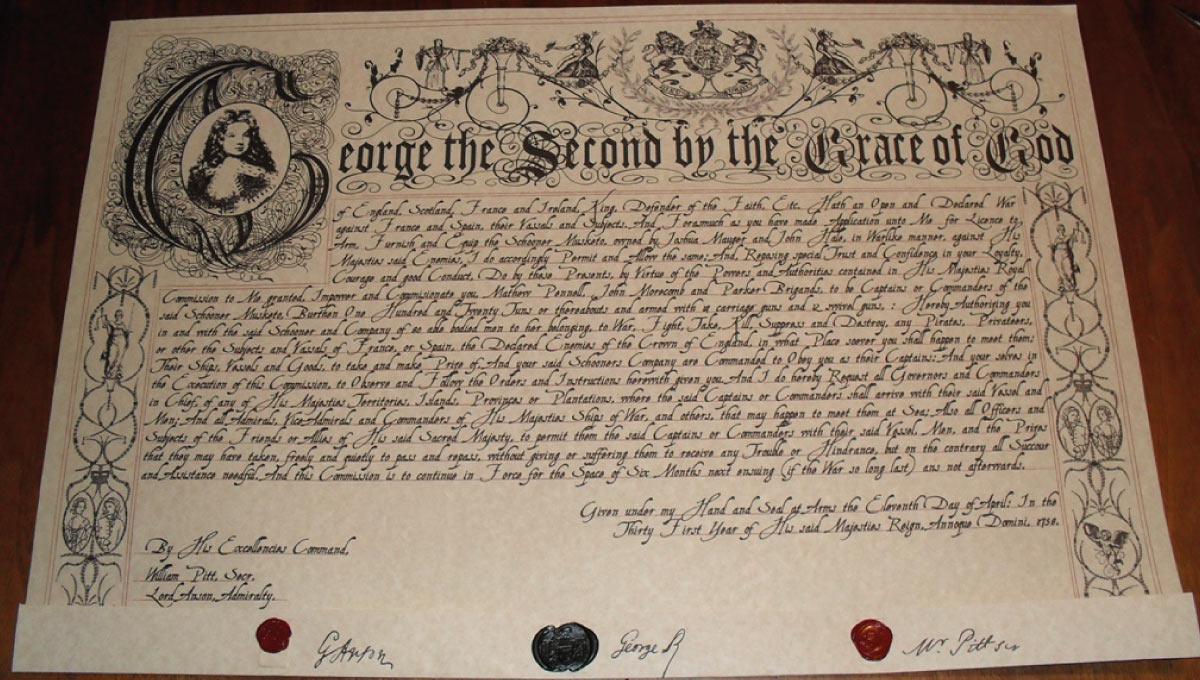 George the Second by the Grace of God
of England, Scotland, France and Ireland, King, Defender of the Faith, Etc. Hath an Open and Declared War
against France and Spain, their Vassals and Subjects. And, Forasmuch as you have made Application unto Me for Licence to
Arm, Furnish and Equip the Schooner Musketo, owned by Joshua Mauger and John Hale, in Warlike manner, against His
Majesties said Enemies, I do accordingly Permit and Allow the same; And, Reposing special Trust and Confidence in your Loyalty,
Courage and good Conduct, Do by these Presents, by Virtue of the Powers and Authorities contained in His Majesties Royal
Commission to Me granted, Impower and Commisionate you, Mathew Pennell, John Morecomb and Parker Brigands, to be Captains or Commanders of the
said Schooner Musketo, Burthen One Hundred and Twenty Tuns or thereabouts and armed with 12 carriage guns and 12 swivel guns, : Hereby Authorizing you
in and with the said Schooner and Company of 80 able bodied men to her belonging, to War, Fight, Take, Kill, Suppress and Destroy, any Pirates, Privateers,
or other the Subjects and Vassals of France, or Spain, the Declared Enemies of the Crown of England, in what Place soever you shall happen to meet them;
Their Ships, Vessels and Goods, to take and make Prize of. And your said Schooners Company are Commanded to Obey you as their Captains: And your selves in
the Execution of this Commission, to Observe and Follow the Orders and Instructions herewith given you. And I do hereby Request all Governors and Commanders
in Chief, of any of His Majesties Territories, Islands, Provinces or Plantations, where the said Captains or Commanders shall arrive with their said Vessel and
Men; And all Admirals, Vice Admirals and Commanders of His Majesties Ships of War, and others, that may happen to meet them at Sea; Also all Officers and
Subjects of the Friends or Allies of His said Sacred Majesty, to permit them the said Captains or Commanders with their said Vessel, Men, and the Prizes
that they may have taken, freely and quietly to pass and repass, without giving or suffering them to receive any Trouble or Hindrance, but on the contrary all Succour
and Assistance needful. And this Commission is to continue in Force for the Space of Six Months next ensuing (if the War so long last) ans not afterwards.
Given under my Hand and Seal at Arms the Eleventh Day of April; In the
Thirty First Year of His said Majesties Reign, Annoque Domini, 1758.
By His Excellencies Command,
William Pitt, Secr.
Lord Anson, Admiralty.
G Anson George R Mr Pitt Scr